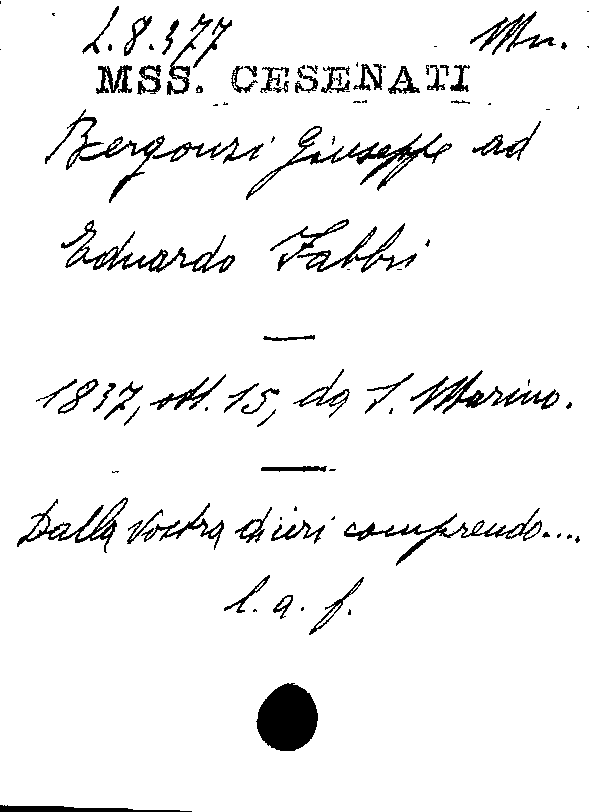 L.8.377 Mn.
MSS. CESENATI
Bergonzi Giuseppe ad
Eduardo Fabbri
—
1837, ott. 15, da S. Marino.
—
Dalla vostra di ieri comprendo....
l. a. f.